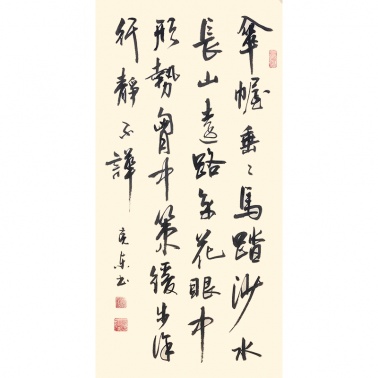 傘幄垂〻馬踏沙水
長山遠路多花眼中
形勢胷中策緩步徐
行靜不譁